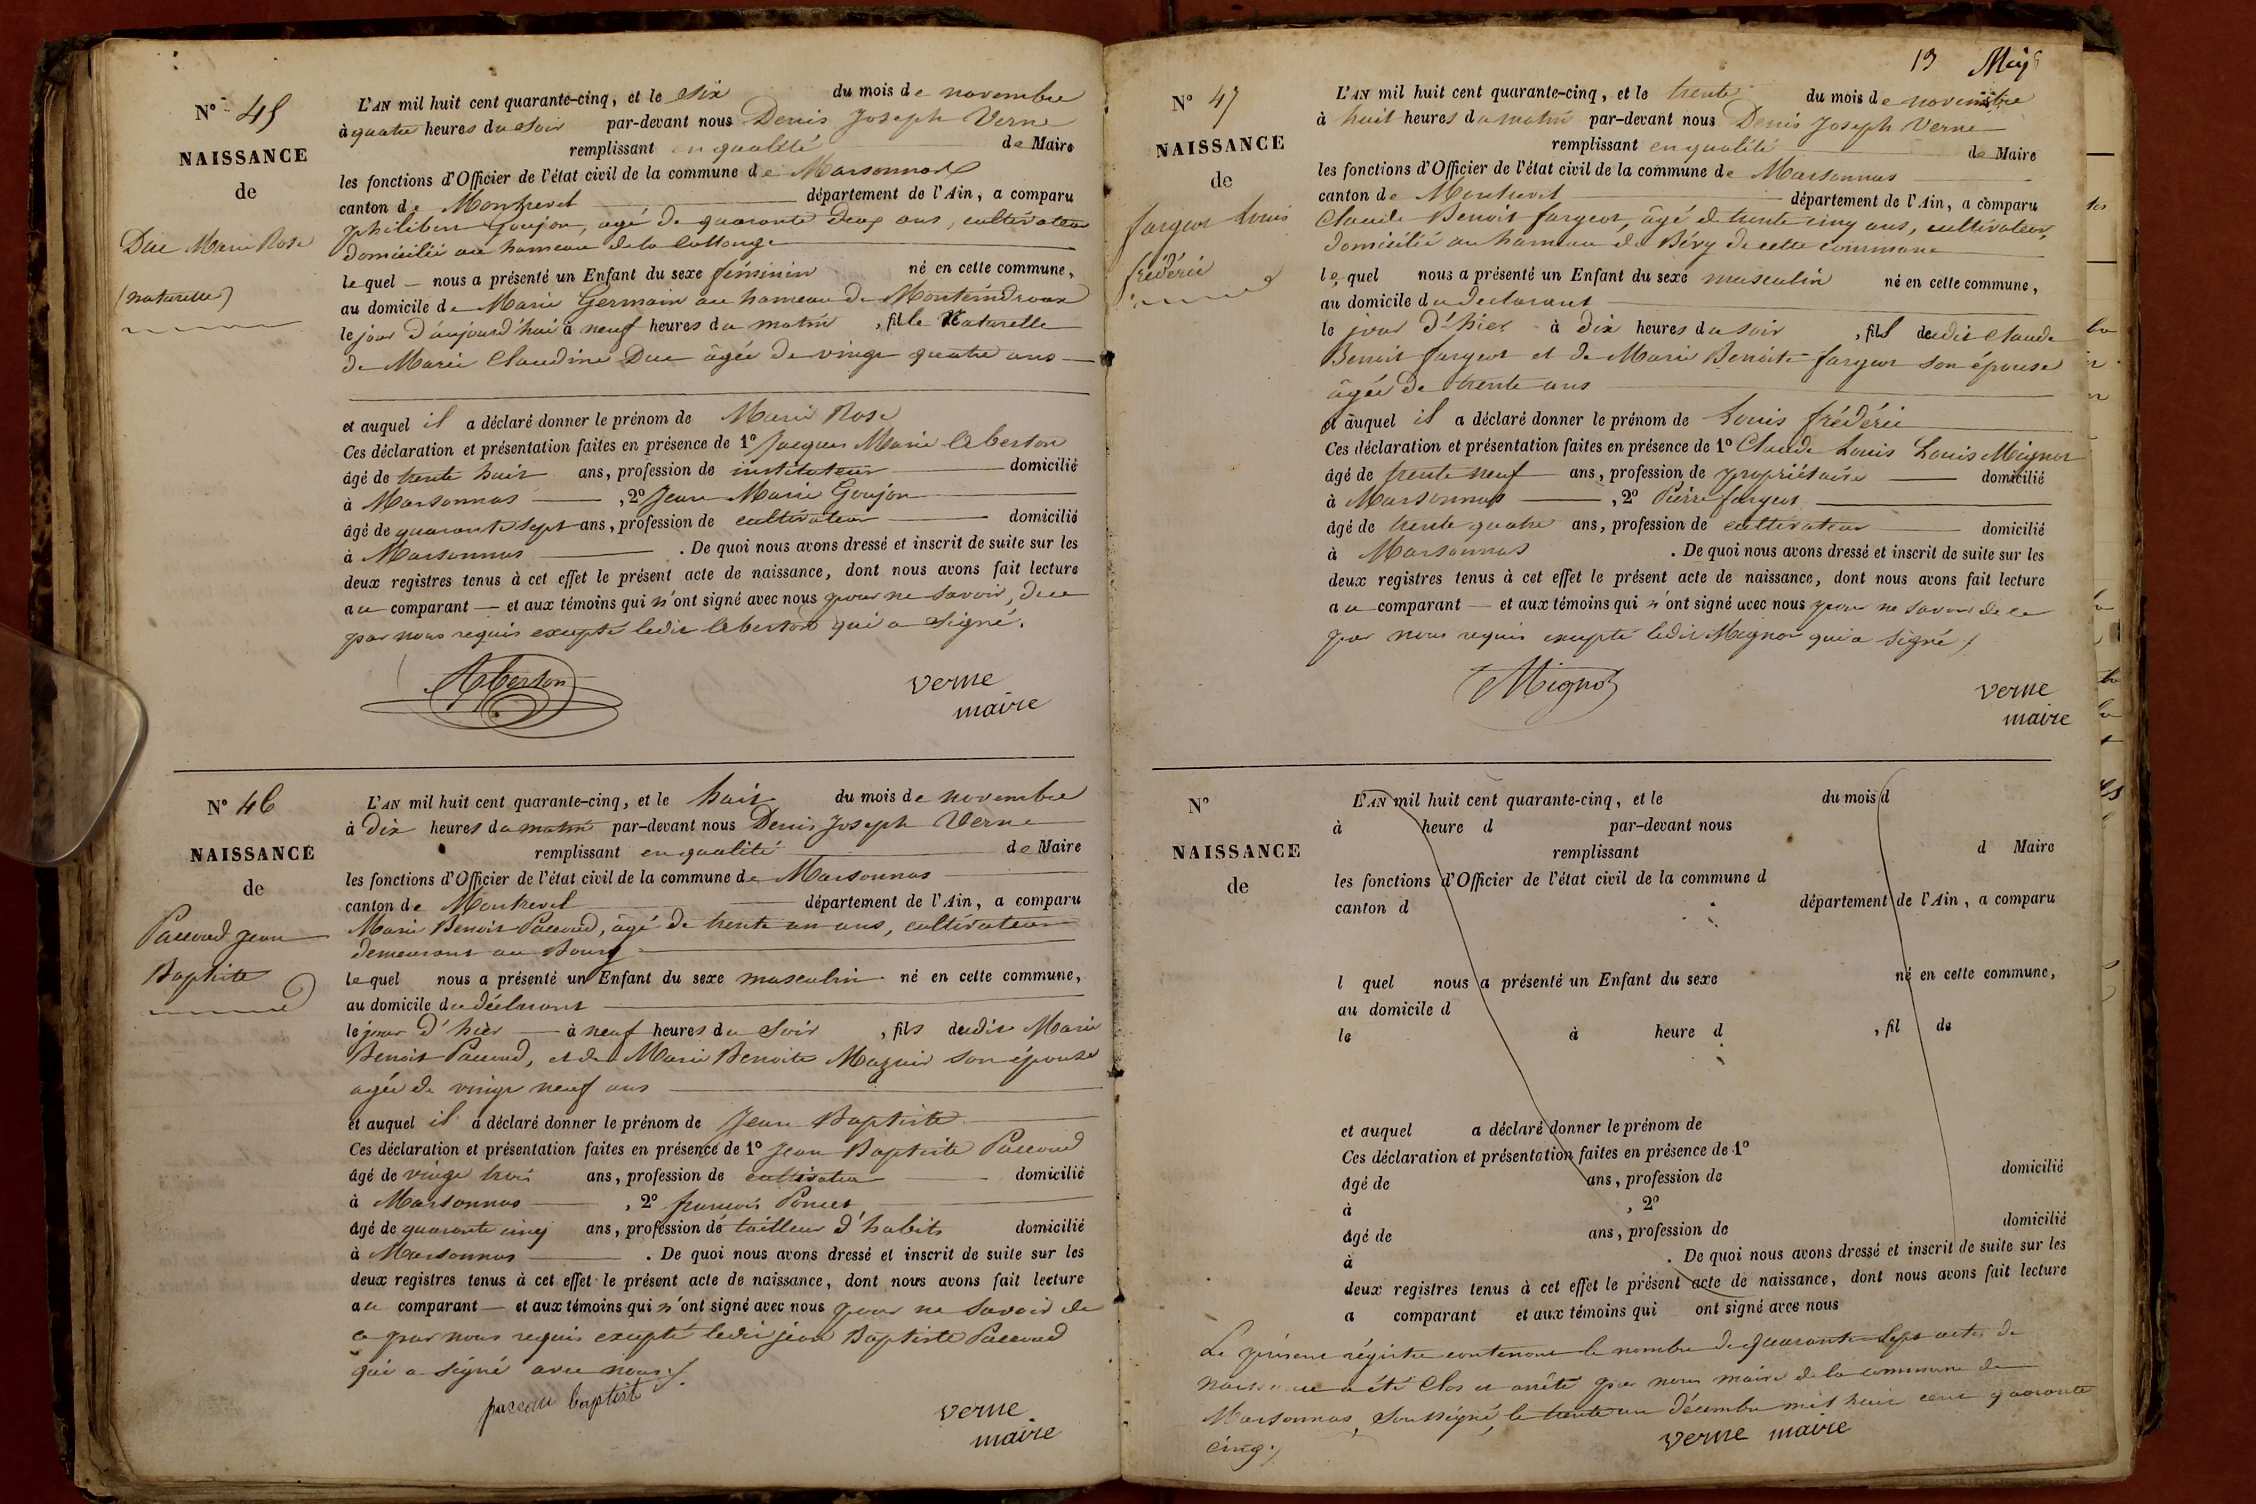 N° 45
NAISSANCE
de
Duc Marie Rose
(naturelle)
L'AN mil huit cent quarante-cinq, et le six du mois de novembre
à quatre heures du soir par-devant nous Denis Joseph Verne
remplissant en qualité de Maire
les fonctions d'Officier de l'état civil de la commune de Marsonnas
canton de Montrevel département de l'Ain, a comparu
philibert Goujon, agé de quarante deux ans, cultivateur
domicilié au hameau de la Collonge
lequel nous a présenté un Enfant du sexe féminin né en cette commune,
au domicile de Marie Germain au hameau de
le jour d'aujourd'hui à neuf heures du matin, fille Naturelle
de Marie Claudine Duc âgée de vingt quatre ans
et auquel il a déclaré donner le prénom de Marie Rose
Ces déclaration et présentation faites en présence de 1° Jacques Marie Leberton
âgé de trente huit ans, profession de instituteur domicilié
à Marsonnas, 2° Jean Marie Goujon
âgé de quarante sept ans, profession de cultivateur domicilié
à Marsonnas. De quoi nous avons dressé et inscrit de suite sur les
deux registres tenus à cet effet le présent acte de naissance, dont nous avons fait lecture
au comparant et aux témoins qui n'ont signé avec nous pour ne savoir, de ce
par nous requis excepté ledit qui a signé.
verne
maire
N° 46
NAISSANCE
de
Paccoud Jean
Baptiste
L'AN mil huit cent quarante-cinq, et le huit du mois de novembre
à dix heures du matin par-devant nous Denis Joseph Verne
remplissant en qualité de Maire
les fonctions d'Officier de l'état civil de la commune de Marsonnas
canton de Montrevel département de l'Ain, a comparu
Marie Benoit Paccoud, âgé de trente un ans, cultivateur
demeurant au Bourg
lequel nous a présenté un Enfant du sexe masculin né en cette commune,
au domicile du déclarant
le jour d'hier à neuf heures du soir, fils dudit Marie
Benoit Paccoud, et de Marie Benoite Mazuir son épouse
agée de vingt neuf ans
et auquel il a déclaré donner le prénom de Jean Baptiste
Ces déclaration et présentation faites en présence de 1° Jean Baptiste Paccoud
âgé de vingt trois ans, profession de cultivateur domicilié
à Marsonnas, 2° françois Poncet
âgé de quarante cinq ans, profession de tailleur d'habits domicilié
à Marsonnas. De quoi nous avons dressé et inscrit de suite sur les
deux registres tenus à cet effet le présent acte de naissance, dont nous avons fait lecture
au comparant et aux témoins qui n'ont signé avec nous pour ne savoir de
ce par nous requis excepté ledit jean Baptiste Paccoud
qui a signé avec nous.
baptiste
verne
maire
13
N° 47
NAISSANCE
de
fargeot Louis
frédéric
L'AN mil huit cent quarante-cinq, et le trente du mois de novembre
à huit heures du matin par-devant nous Denis Joseph Verne
remplissant en qualité de Maire
les fonctions d'Officier de l'état civil de la commune de Marsonnas
canton de Montrevel département de l'Ain, a comparu
Claude Benoit fargeot, âgé de trente cinq ans, cultivateur,
domicilié au hameau de Béry de cette commune
lequel nous a présenté un Enfant du sexe masculin né en cette commune,
au domicile du declarant
le jour d'hier à dix heures du soir, fils dudit Claude
Benoit fargeot et de Marie Benoite fargeot son épouse
âgée de trente ans
et auquel il a déclaré donner le prénom de Louis frédéric
Ces déclaration et présentation faites en présence de 1° Claude Louis Louis Mignot
âgé de trente neuf ans, profession de propriétaire domicilié
à Marsonnas, 2° Pierre fargeot
âgé de trente quatre ans, profession de cultivateur domicilié
à Marsonnas. De quoi nous avons dressé et inscrit de suite sur les
deux registres tenus à cet effet le présent acte de naissance, dont nous avons fait lecture
au comparant et aux témoins qui n'ont signé avec nous pour ne savoir de ce
par nous requis excepté ledit Mignot qui a signé
Mignot
verne
maire
N°
NAISSANCE
de
L'AN mil huit cent quarante-cinq, et le du mois d
à heure d par-devant nous
remplissant d Maire
les fonctions d'Officier de l'état civil de la commune d
canton d département de l'Ain, a comparu
l quel nous a présenté un Enfant du sexe né en cette commune,
au domicile d
le à heure d, fil de
et auquel a déclaré donner le prénom de
Ces déclaration et présentation faites en présence de 1°
âgé de ans, profession de domicilié
à, 2°
âgé de ans, profession de domicilié
à. De quoi nous avons dressé et inscrit de suite sur les
deux registres tenus à cet effet le présent acte de naissance, dont nous avons fait lecture
a comparant et aux témoins qui ont signé avec nous
Le présent régistre contenant le nombre de quarante sept actes de
naissance a été Clos et arrêté par nous maire de la commune de
Marsonnas, soussigné, le trente un décembre mil huit cent quarante
cinq.
verne maire